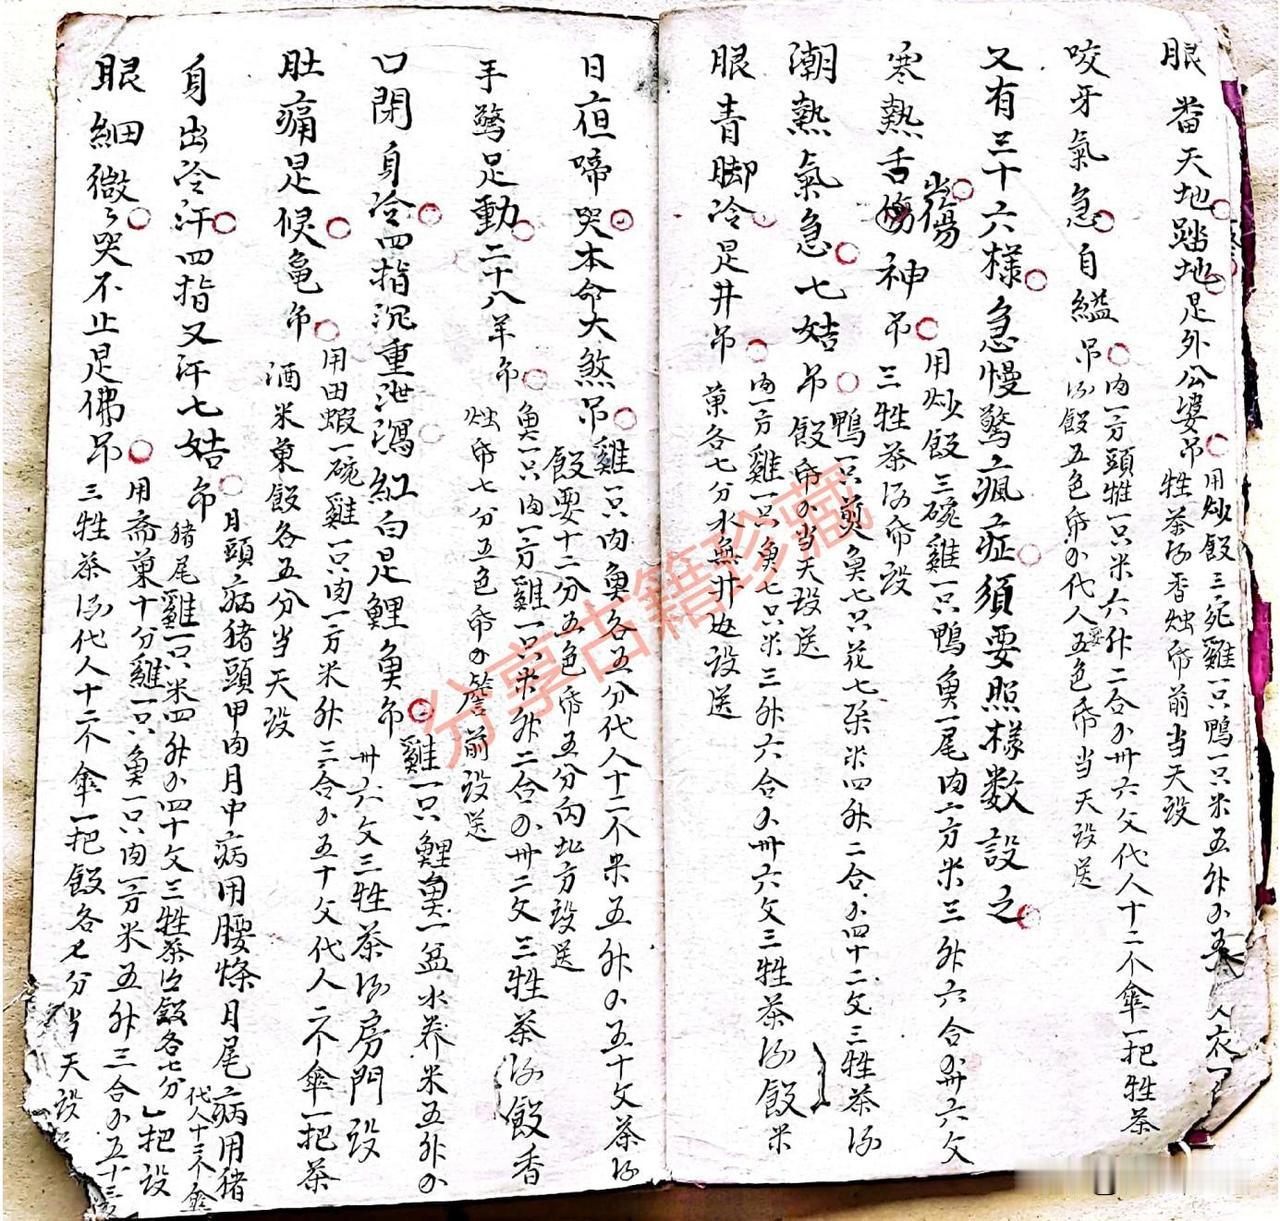 眼畨天地踏地是外公婆吊
用炒飯三宛雞一只鴨一只米五升
牲茶酒香烛帋前当天设
咬牙氣急自縊吊
肉一方頭牲一只米六升二合卅六文代人十二个傘一把牲茶
酒飯五色帋代人五色帋当天设送
又有三十六樣急慢驚瘋症須要照樣数設之
寒熱舌傷神吊
用炒飯三碗雞一只鴨魚一尾肉一方米三升六合卅六文
三牲茶酒帋设
潮熱氣急七姑吊
鴨一只煎魚七只花七朵米四升二合四十二文三牲茶酒
飯帋当天设送
眼青脚冷是井吊
肉一方雞一只魚七只米三升六合卅六文三牲茶酒飯米
菓各七分水無井边设送
日夜啼哭本命大煞吊
雞一只肉魚各五分代人十二个米五升五十文茶酒
飯要十二分五色帋五分丙北方设送
手驚足動二十八羊吊
魚一只肉一方雞一只米升二合卅二文三牲茶酒飯香
烛帋七分五色帋簷前设送
口閉身冷四指沉重泄瀉紅白是鯉魚吊
雞一只鯉魚一盆水养米五升
卅六文三牲茶酒房門设
肚痛是候亀吊
用田蝦一碗雞一只肉一方米升三合五十文代人二个傘一把茶
酒米菓飯各五分当天设
身出冷汗四指又汗七姑吊
月頭病猪頭甲肉月中病用腰條月尾病用猪
猪尾雞一只米四升四十文三牲茶酒飯各七分
代人十二个傘一把设
眼細微々哭不止是佛吊
用斋菓十分雞一只魚一只肉一方米五升三合五十三
三牲茶酒代人十二个傘一把飯各七分当天设
分享古籍珍藏